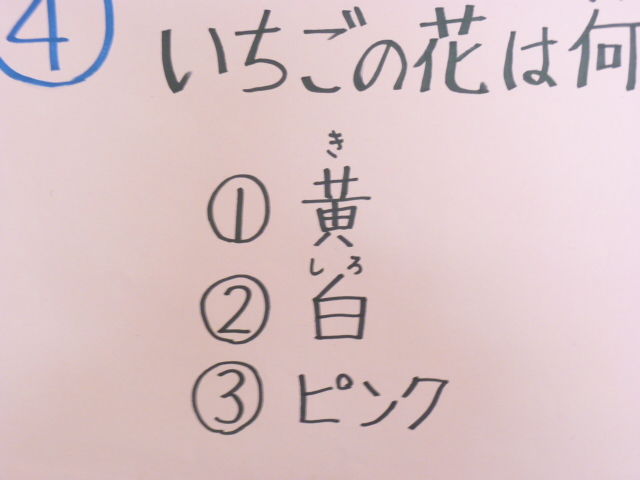 ④ いちごの花は何
き
① 黄
しろ
② 白
③ ピンク